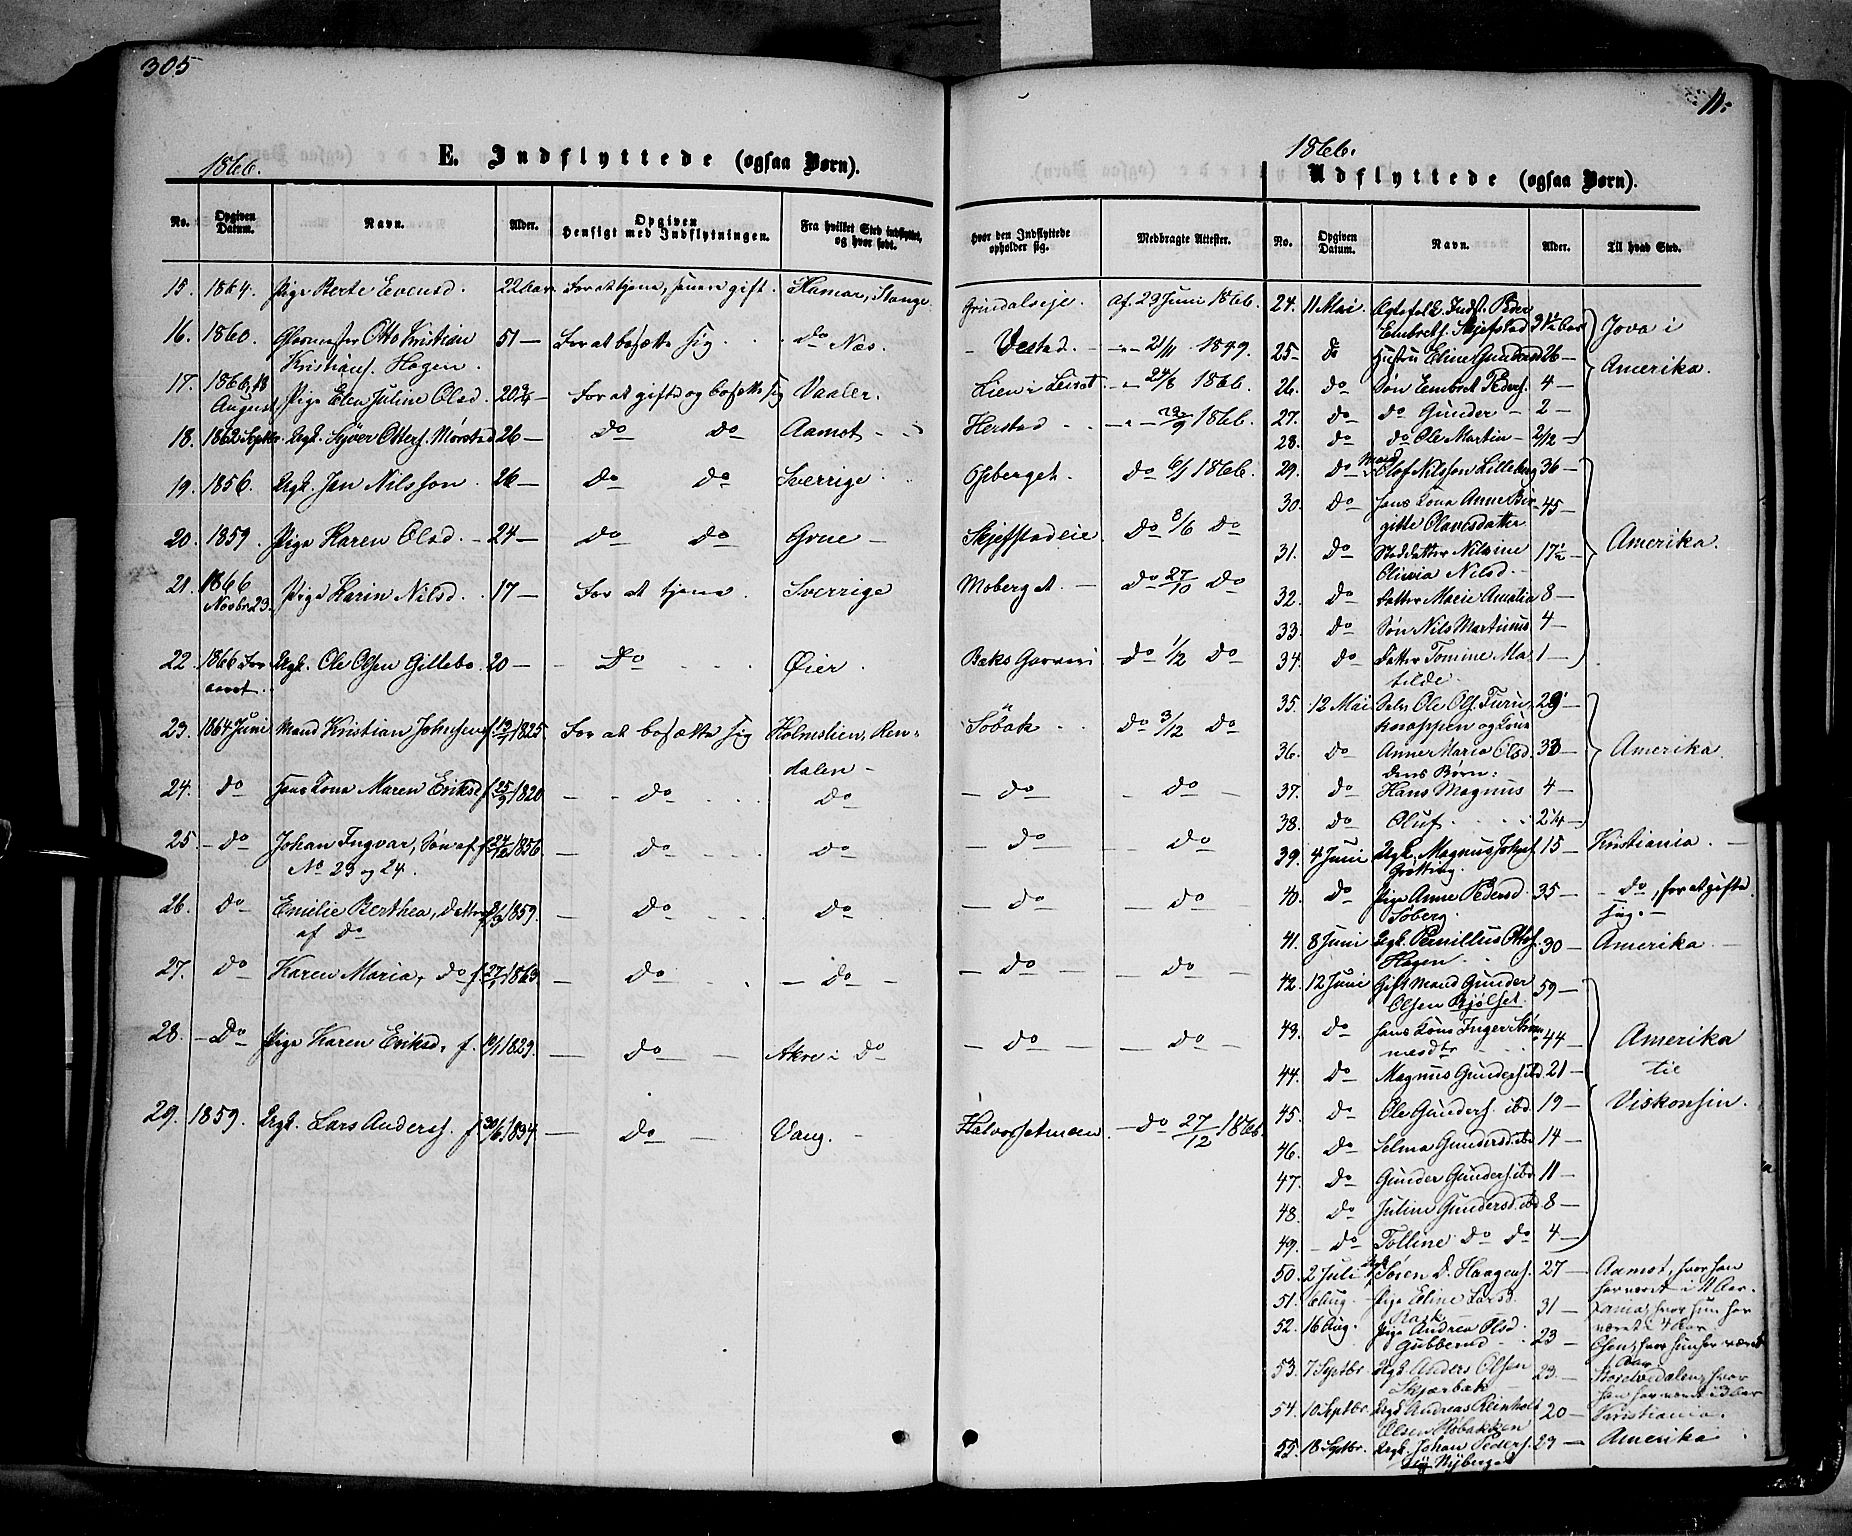 305
11.
1866.
E. Indflyttede (ogsaa Børn).
No. Opgiven Datum. Navn. Alder. Opgiven Hensigt med Indflytningen. Fra hvilket Sted indflyttet, og hvor født. Hvor den Indflyttede opholder sig. Medbragte Attester.
15. 1864. Pige Berte Evensd. 22 Aar For at tjene, senere gift. Hamar, Stange. Grindalseje. Af. 29 Juni 1866.
16. 1860. Otto Kristian 51 — For at bosætte sig. do Næs. Vestad. 2/11 1849.
Kristians. Hagen.
17. 1866, 18 August Pige Elen Juline Olsd. 20 3/4 — For at gifte og bosætte sig Vaaler. Lien i 24/8 1866.
18. 1862 Septbr. Ugk. Syver Otters. Mørstad 26 — do do Aamot Herstad 29/9 1866.
19. 1856. Ugk. Jan Nilsson. 26 — do do Sverrige Opberget. do 6/1 1866.
20. 1859. Pige Karen Olsd. 24 — do do Grue — Skjefstadeie do 8/6 do
21. 1866 Novbr. 23. Pige Karin Nilsd. 17 — For at tjene. Sverrige Moberget — do 27/10 do
22. 1866 For- aaret. Ugk. Ole Olsen Gillebo. 20 — Do Øier. Bæks Garveri do 1/2 do
23. 1864 Juni Mand Kristian Johnsen f. 13/7 1825 For at bosætte sig Holmslien, Ren- Søbak do 3/12 do
dalen —
24. do Hans Kone Maren Eriksd. f. 25/9 1820 do do do do
25. do Johan Ingvar, Søn af f. 24/12 1856. do do do do
No 23 og 24.
26. do Emilie Berthea, Datter f. 21/3 1859. do do do do
af do
27. do Karen Maria, do f. 27/1 1863. do do do do
28. Do Pige Karen Eriksd. f. 1829. do Akre i do do do
29. 1859. Ugk. Lars Anders. f. 30/6 1834. do Vang. Halvorsetmoen. do 27/12 1866.
1866.
Udflyttede (ogsaa Børn).
No. Opgiven Datum. Navn. Alder. Til hvad Sted.
24. 11 Mai Ægtefolk. Inds. Peder
Embrets. Skjefstad 31 1/2 Aar Jova i
25. do Hustru Eline Gundersd. 26 — Amerika.
26. do Søn Embret Peders. 4 —
27. do do Gunder — 2 —
28. do do Ole Martin — 2/12 —
29. do Mand Olof Nilsson Lilleberg 36 —
30. do Hans Kone Anne Bir- 45 —
gitte Olavesdatter
31. do Steddatter Nilsine 17 1/2 — Amerika.
Olivia Nilsd.
32. do Datter Marie Amalia 8 —
33. do Søn Nils Martinus 4 —
34. do Datter Tomine Ma- 1 —
tilde.
35. 12 Mai Ole Ols. Furu- 29
knappen og Kone
36. do Anne Maria Olsd. 33 Amerika
dens Børn:
37. do Hans Magnus 4 —
38. do Oluf. 2 1/4 —
39. 4 Juni Ugk. Magnus Johns. 15 — Kristiania. —
Grøtting.
40. do Pige Anne Pedersd. 35 — do, for at gifte
Søberg. sig. —
41. 8 Juni Ugk. Pernillus Ottos. 30 — Amerika —
Hagen.
42. 12 Juni Gift Mand Gunder 59 —
Olsen Kjølset.
43. do Hans Kone Inger Simo- 44 — Amerika
nesdtr
44. do Magnus Gunders. ibd. 21 — til
45. do Ole Gunders. ibd. 19 — Viskonsin.
46. do Selma Gundersd. ibd 14 —
47. do Gunder Gunders. ibd 11 —
48. do Juline Gundersd. ibd 8 —
49. do Tolline do do 4 —
50. 2 Juli Ugk. Søren D. Haagens. 27 — Aamot, hvor han
har været i Aar.
51. 6 Aug. Pige Eline Larsd. 31 — hvor hun har
været i 4 Aar
52. 16 Aug. Pige Andrea Olsd. 23 — hvor hun har været
Gubberud Aar
53. 7 Septbr. Ugk Anders Olsen 23 — hvor
Skjærbæk han har været i Aar
54. 10 Septbr. Ugk Andreas Reinholt 20 — Kristiania.
Olsen
55. 18 Septbr. Ugk. Johan Peders. 29 — Amerika
Nyberget